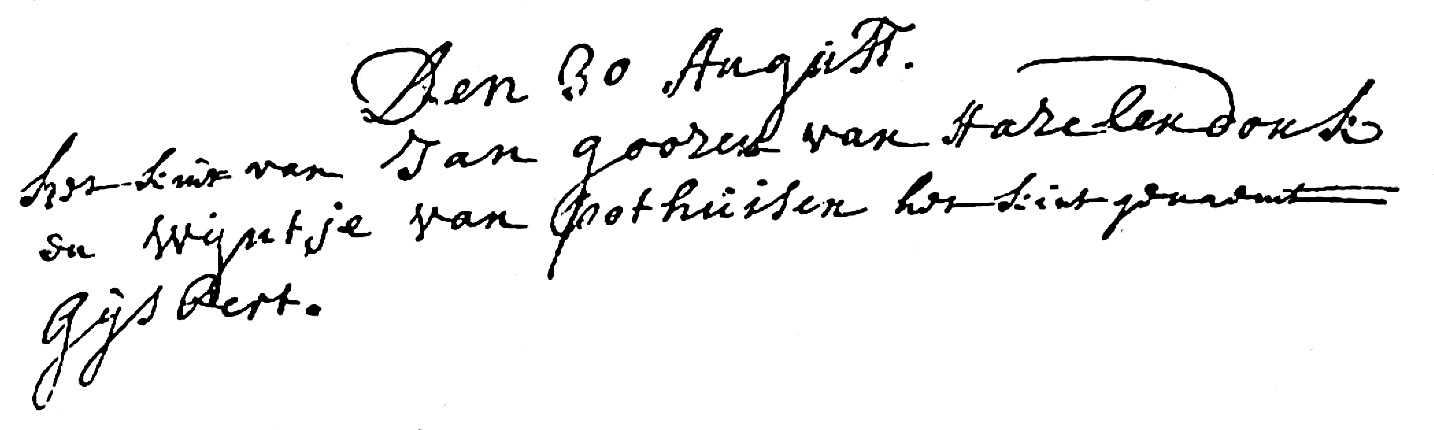 Den 30 Augūst.
het kint van Jan goozen van Hazelendonk
en Wijntje van pothuisen het kint genaemt
Gijsbert.